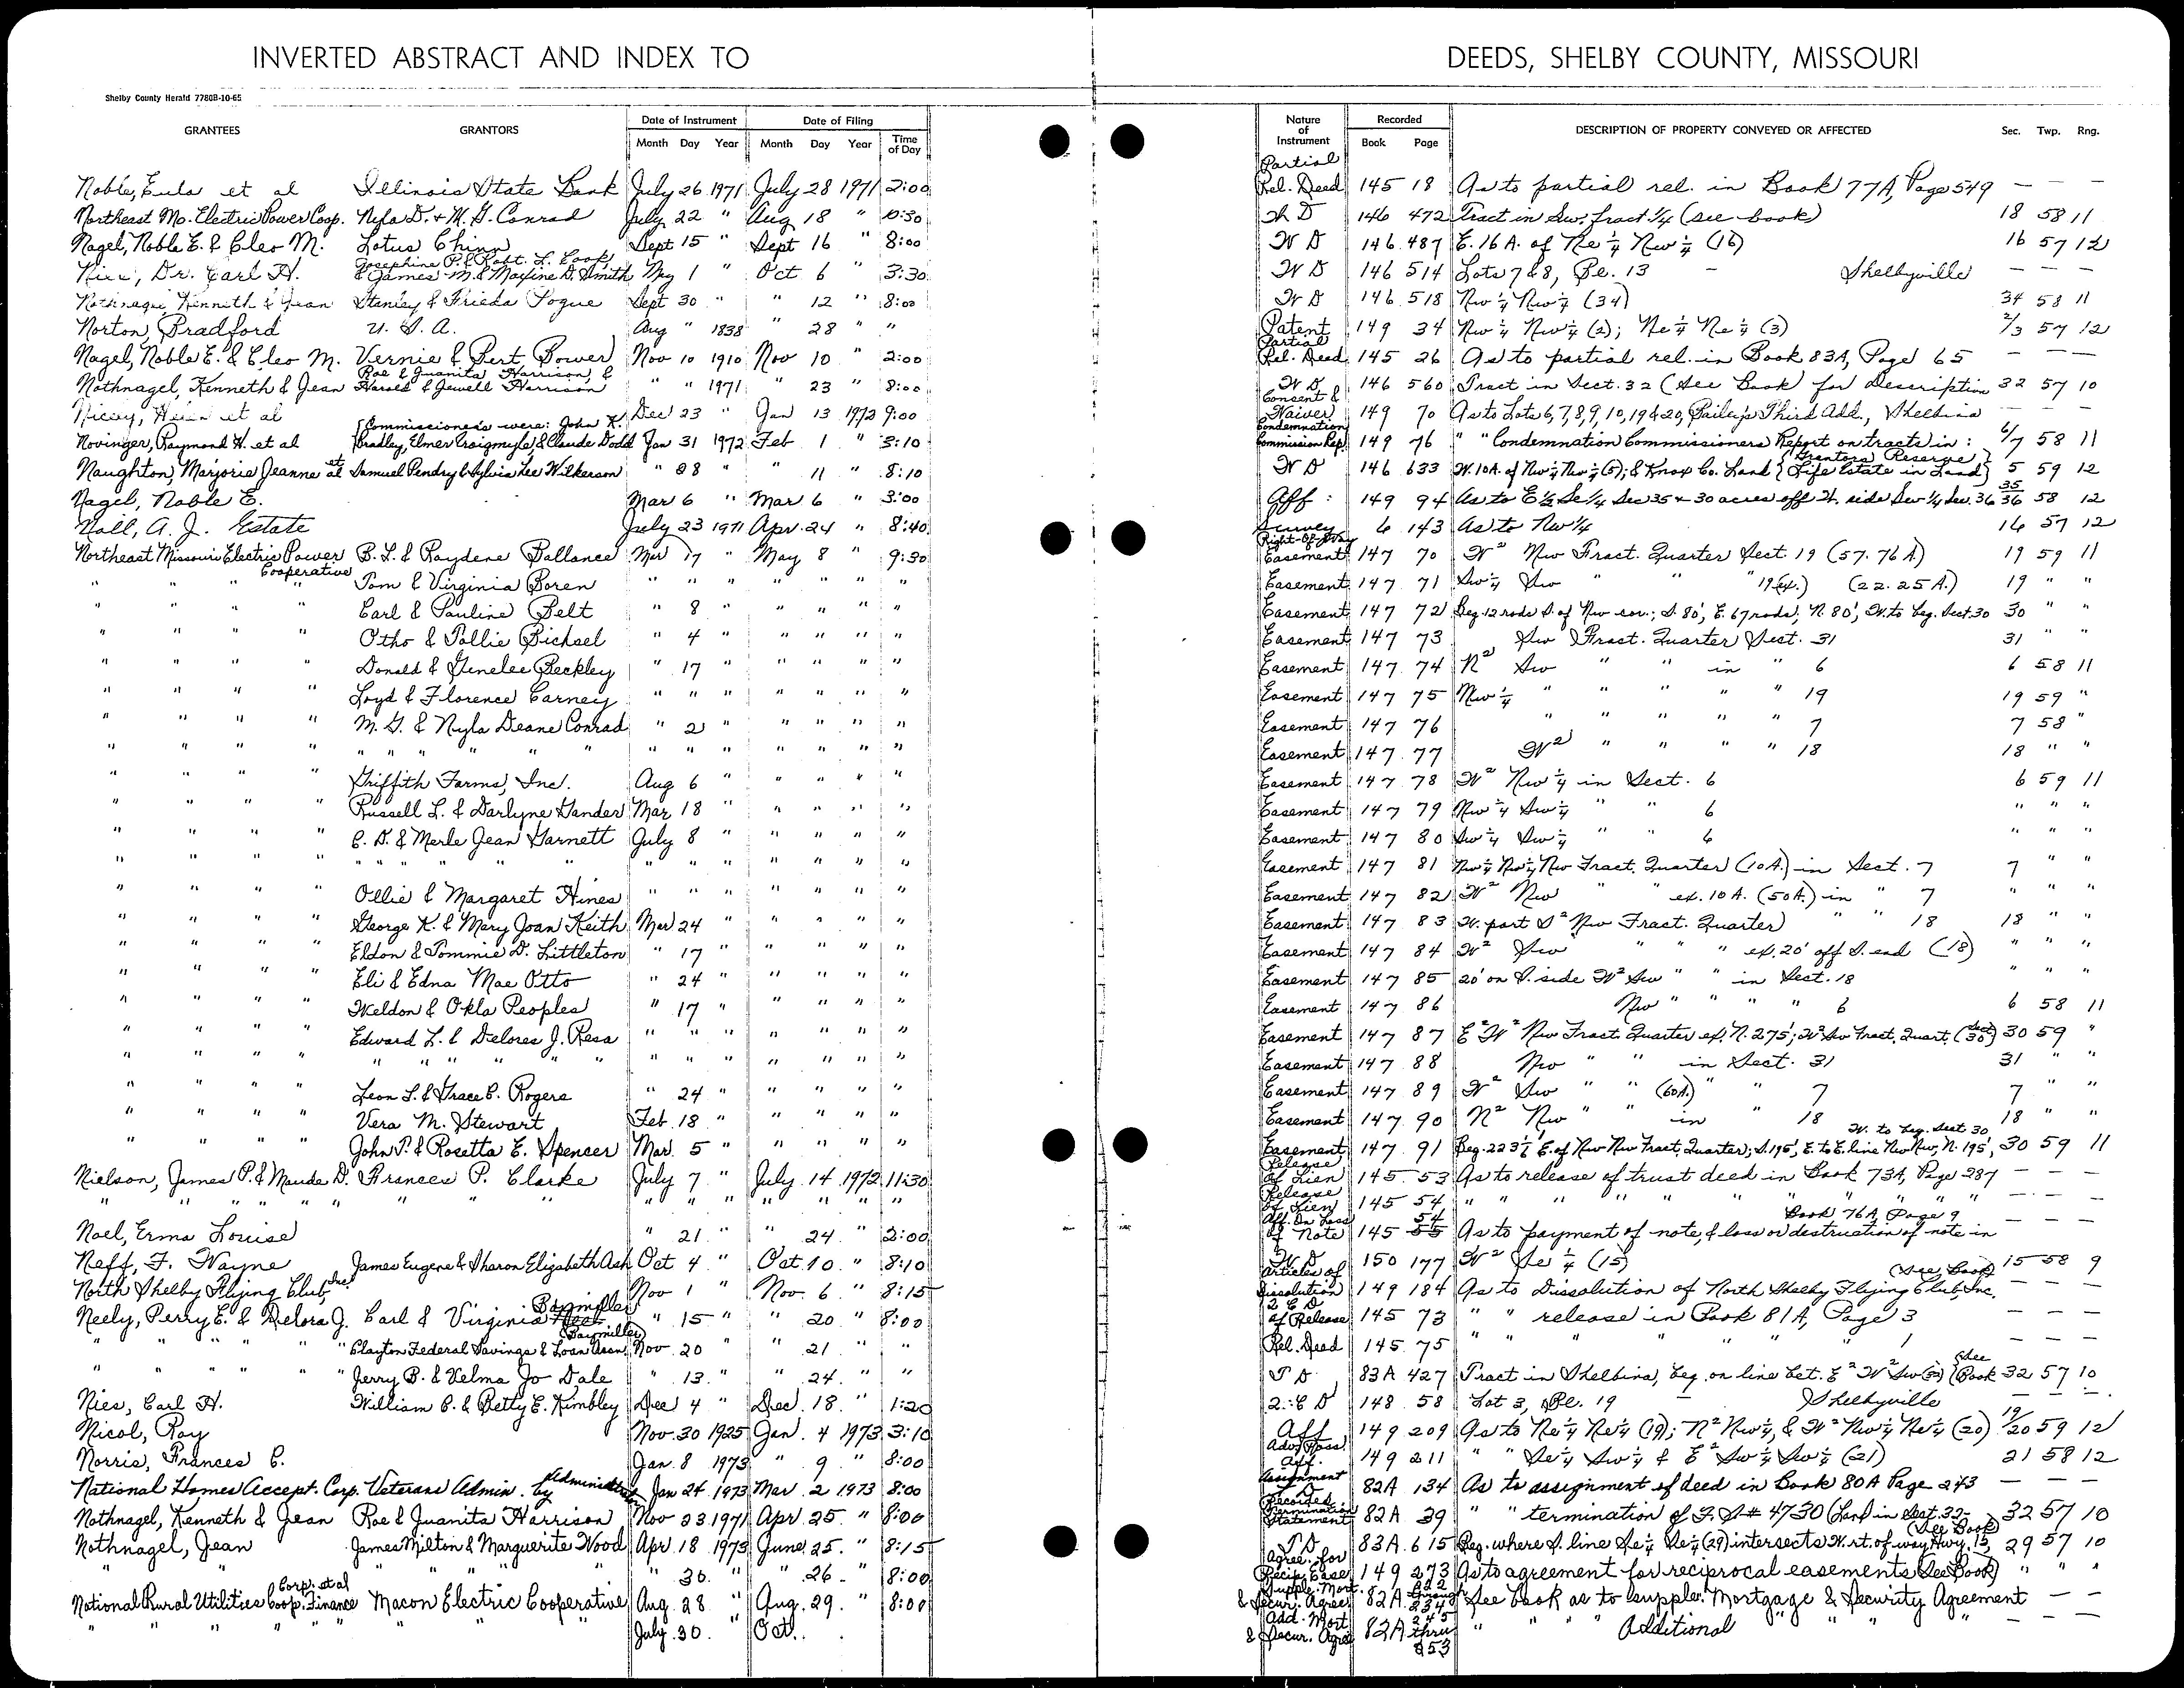 INVERTED ABSTRACT AND INDEX TO DEEDS, SHELBY COUNTY, MISSOURI
Shelby County Herald 7780B-10-65
GRANTEES GRANTORS Date of Instrument Month Day Year Date of Filing Month Day Year Time of Day Nature of Instrument Recorded Book Page DESCRIPTION OF PROPERTY CONVEYED OR AFFECTED Sec. Twp. Rng.
Noble, Eula et al Illinois State Bank July 26 1971 July 28 1971 2:00 Partial Rel. Deed 145 18 As to partial rel. in Book 77A, Page 549 — — —
Northeast Mo. Electric Power Coop. Nyla D. & M. G. Conrad July 22 " Aug 18 " 10:30 W D 146 472 Tract in Sw. fract 1/4 (see book) 18 58 11
Nagel, Noble E. & Cleo M. Lotus Chinn Sept 15 " Sept 16 " 8:00 W D 146 487 E. 16 A. of Ne 1/4 Nw 1/4 (16) 16 57 12
Dr. Earl H. Josephine P. & Robt. L. Cook, & James M. & Maxine D. Smith May 1 " Oct 6 " 3:30 W D 146 514 Lots 7 & 8, Bl. 13 – Shelbyville — — —
Nothnagel, Kenneth & Jean Stanley & Frieda Pogue Sept 30 " " 12 " 8:00 W D 146 518 Nw 1/4 Nw 1/4 (34) 34 58 11
Norton, Bradford U. S. A. Aug " 1838 " 28 " " Patent 149 34 Nw 1/4 Nw 1/4 (2); Ne 1/4 Ne 1/4 (3) 2/3 57 12
Nagel, Noble E. & Cleo M. Vernie & Bert Bower Nov 10 1910 Nov 10 " 2:00 Partial Rel. Deed 145 26 As to partial rel. in Book 83A, Page 65 — — —
Nothnagel, Kenneth & Jean Roe & Juanita Harrison, & Harold & Jewell Harrison " " 1971 " 23 " 8:00 W D 146 560 Tract in Sect. 32 (See Book) for Description 32 57 10
et al Dec 23 " Jan 13 1972 9:00 Consent & Waiver 149 70 As to Lots 6, 7, 8, 9, 10, 19 & 20, Bailey's Third Add., Shelbina — — —
Novinger, Raymond H. et al Commissioners were: John K. Bradley, Elmer Craigmyle, & Claude Dodd Jan 31 1972 Feb 1 " 3:10 Condemnation Commission Rep. 149 76 " " Condemnation Commissioners Report on tracts in: 6/7 58 11
Naughton, Marjorie Jeanne et al Samuel Pendry & Sylvia Lee Wilkerson " 28 " " 11 " 8:10 W D 146 633 W. 10A. of Nw 1/4 Nw 1/4 (5); & Knox Co. Land {Grantors Reserve Life Estate in Land} 5 59 12
Nagel, Noble E. Mar 6 " Mar 6 " 3:00 Aff: 149 94 As to E 1/2 Se 1/4 Sec 35 & 30 acres off W. side Sw 1/4 Sec. 36 35/36 58 12
Noll, A. J. Estate July 23 1971 Apr. 24 " 8:40 Survey 6 143 As to Nw 1/4 16 57 12
Northeast Missouri Electric Power Cooperative B. L. & Raydene Ballance Mar 17 " May 8 " 9:30 Right-Of-Way Easement 147 70 W² Nw Fract. Quarter Sect. 19 (57.76 A) 19 59 11
" " " " Tom & Virginia Boren " " " " " " " Easement 147 71 Sw 1/4 Sw " " 19 (ex.) (22.25 A.) 19 " "
" " " " Earl & Pauline Belt " 8 " " " " " Easement 147 72 Beg. 12 rods S. of Nw cor.; S. 80', E. 67 rods, N. 80', W. to beg. Sect. 30 30 " "
" " " " Otho & Pollie Bichsel " 4 " " " " " Easement 147 73 Sw Fract. Quarter Sect. 31 31 " "
" " " " Donald & Genelee Beckley " 17 " " " " " Easement 147 74 N² Sw " " in " 6 6 58 11
" " " " Loyd & Florence Carney " " " " " " " Easement 147 75 Nw 1/4 " " " " 19 19 59 "
" " " " M. G. & Nyla Deane Conrad " 2 " " " " " Easement 147 76 " " " " 7 7 58 "
" " " " " " " " " " " " " " " " " Easement 147 77 W² " " " " 18 18 " "
" " " " Griffith Farms, Inc. Aug 6 " " " " " Easement 147 78 W² Nw 1/4 in Sect. 6 6 59 11
" " " " Russell L. & Darlyne Gander Mar 18 " " " " " Easement 147 79 Nw 1/4 Sw 1/4 " " 6 " " "
" " " " C. D. & Merle Jean Garnett July 8 " " " " " Easement 147 80 Sw 1/4 Sw 1/4 " " 6 " " "
" " " " " " " " " " " " " " " " " Easement 147 81 Nw 1/4 Nw 1/4 Nw Fract. Quarter (10A.) in Sect. 7 7 " "
" " " " Ollie & Margaret Hines " " " " " " " Easement 147 82 W² Nw " " ex. 10 A. (50A.) in " 7 " " "
" " " " George K. & Mary Joan Keith Mar 24 " " " " " Easement 147 83 W. part S² Nw Fract. Quarter " " 18 18 " "
" " " " Eldon & Tommie D. Littleton " 17 " " " " " Easement 147 84 W² Sw " " " ex. 20' off S. end (18) " " "
" " " " Eli & Edna Mae Otto " 24 " " " " " Easement 147 85 20' on S. side W² Sw " " in Sect. 18 " " "
" " " " Weldon & Okla Peoples " 17 " " " " " Easement 147 86 Nw " " " " 6 6 58 11
" " " " Edward L. & Delores J. Resa " " " " " " " Easement 147 87 E² W² Nw Fract. Quarter ex. N. 275'; W² Sw Fract. Quart. (Sect 30) 30 59 "
" " " " " " " " " " " " " " " " Easement 147 88 Nw " " in Sect. 31 31 " "
" " " " Leon L. & Grace C. Rogers " 24 " " " " " Easement 147 89 W² Sw " " (60A.) " " 7 7 " "
" " " " Vera M. Stewart Feb 18 " " " " " Easement 147 90 N² Nw " " in " 18 18 " "
" " " John P. & Rosetta E. Spencer Mar. 5 " " " " " Easement 147 91 Beg. 223 1/2' E. of Nw Nw Fract. Quarter; S. 195', E. to E. line Nw Nw, N. 195', W. to beg. Sect 30 30 59 11
Nielson, James P. & Maude D. Frances P. Clarke July 7 " July 14 1972 11:30 Release of Lien 145 53 As to release of trust deed in Book 73A, Page 287 — — —
" " " " " " " " " " " " " " " Release of Lien 145 54 " " " " " " " " " " " — — —
Noel, Erma Louise " 21 " " 24 " 2:00 Aff. On Loss of Note 145 54 As to payment of note, & loss or destruction of note in Book 76A, Page 9 — — —
Neff, F. Wayne James Eugene & Sharon Elizabeth Ash Oct 4 " Oct 10 " 8:10 W. D. 150 177 W² Se 1/4 (15) 15 58 9
North Shelby Flying Club, Inc. Nov 1 " Nov. 6 " 8:15 Articles of Dissolution 149 184 As to Dissolution of North Shelby Flying Club, Inc. (See Book) — — —
Neely, Perry E. & Delora J. Carl & Virginia Baymiller (Baymiller) " 15 " " 20 " 8:00 2 C D of Release 145 73 " " release in Book 81A, Page 3 — — —
" " " " " Clayton Federal Savings & Loan Assn. Nov. 20 " 21 " " Rel. Deed 145 75 " " " " " " 1 — — —
" " " " " Jerry B. & Velma Jo Dale " 13 " " 24 " " T D 83A 427 Tract in Shelbina, beg. on line bet. E² W² Sw (32) (See Book 32 57 10
Nies, Earl H. William C. & Betty E. Kimbley Dec 4 " Dec. 18 " 1:20 2:C D 148 58 Lot 3, Bl. 19 – Shelbyville — — —
Nicol, Roy Nov. 30 1925 Jan. 4 1973 3:10 Aff. 149 209 As to Ne 1/4 Ne 1/4 (19); N² Nw 1/4, & W² Nw 1/4 Ne 1/4 (20) 19/20 59 12
Norris, Frances C. Jan. 8 1973 " 9 " 8:00 Adv. Poss. Aff. 149 211 " " Se 1/4 Sw 1/4 & E² Sw 1/4 Sw 1/4 (21) 21 58 12
National Homes Accept. Corp. Veterans Admin. by Administrator Jan 24 1973 Mar. 2 1973 8:00 Assignment D 82A 134 As to assignment of deed in Book 80A Page 243 — — —
Nothnagel, Kenneth & Jean Roe & Juanita Harrison Nov 23 1971 Apr. 25 " 8:00 Recorded Termination Statement 82A 39 " " termination of F. S # 4730 (Land in Sect. 32 – (See Book) 32 57 10
Nothnagel, Jean James Milton & Marguerite Wood Apr 18 1973 June 25 " 8:15 T D 83A 615 Beg. where S. line Se 1/4 Se 1/4 (29) intersects W. rt. of-way Hwy. 15, 29 57 10
" " " " " 30. " " 26 " 8:00 Agree. for Recip. Ease. 149 273 As to agreement for reciprocal easements (See Book) " " "
National Rural Utilities Coop. Finance Corp. et al Macon Electric Cooperative Aug. 28 " Aug. 29. " 8:00 Supple. Mort. & Secur. Agree. 82A through 234 See book as to supple. Mortgage & Security Agreement — —
" " " " " " " July 30. " Oct. Add. Mort. & Secur. Agree 82A 245 thru 253 " " " " Additional " " " — —